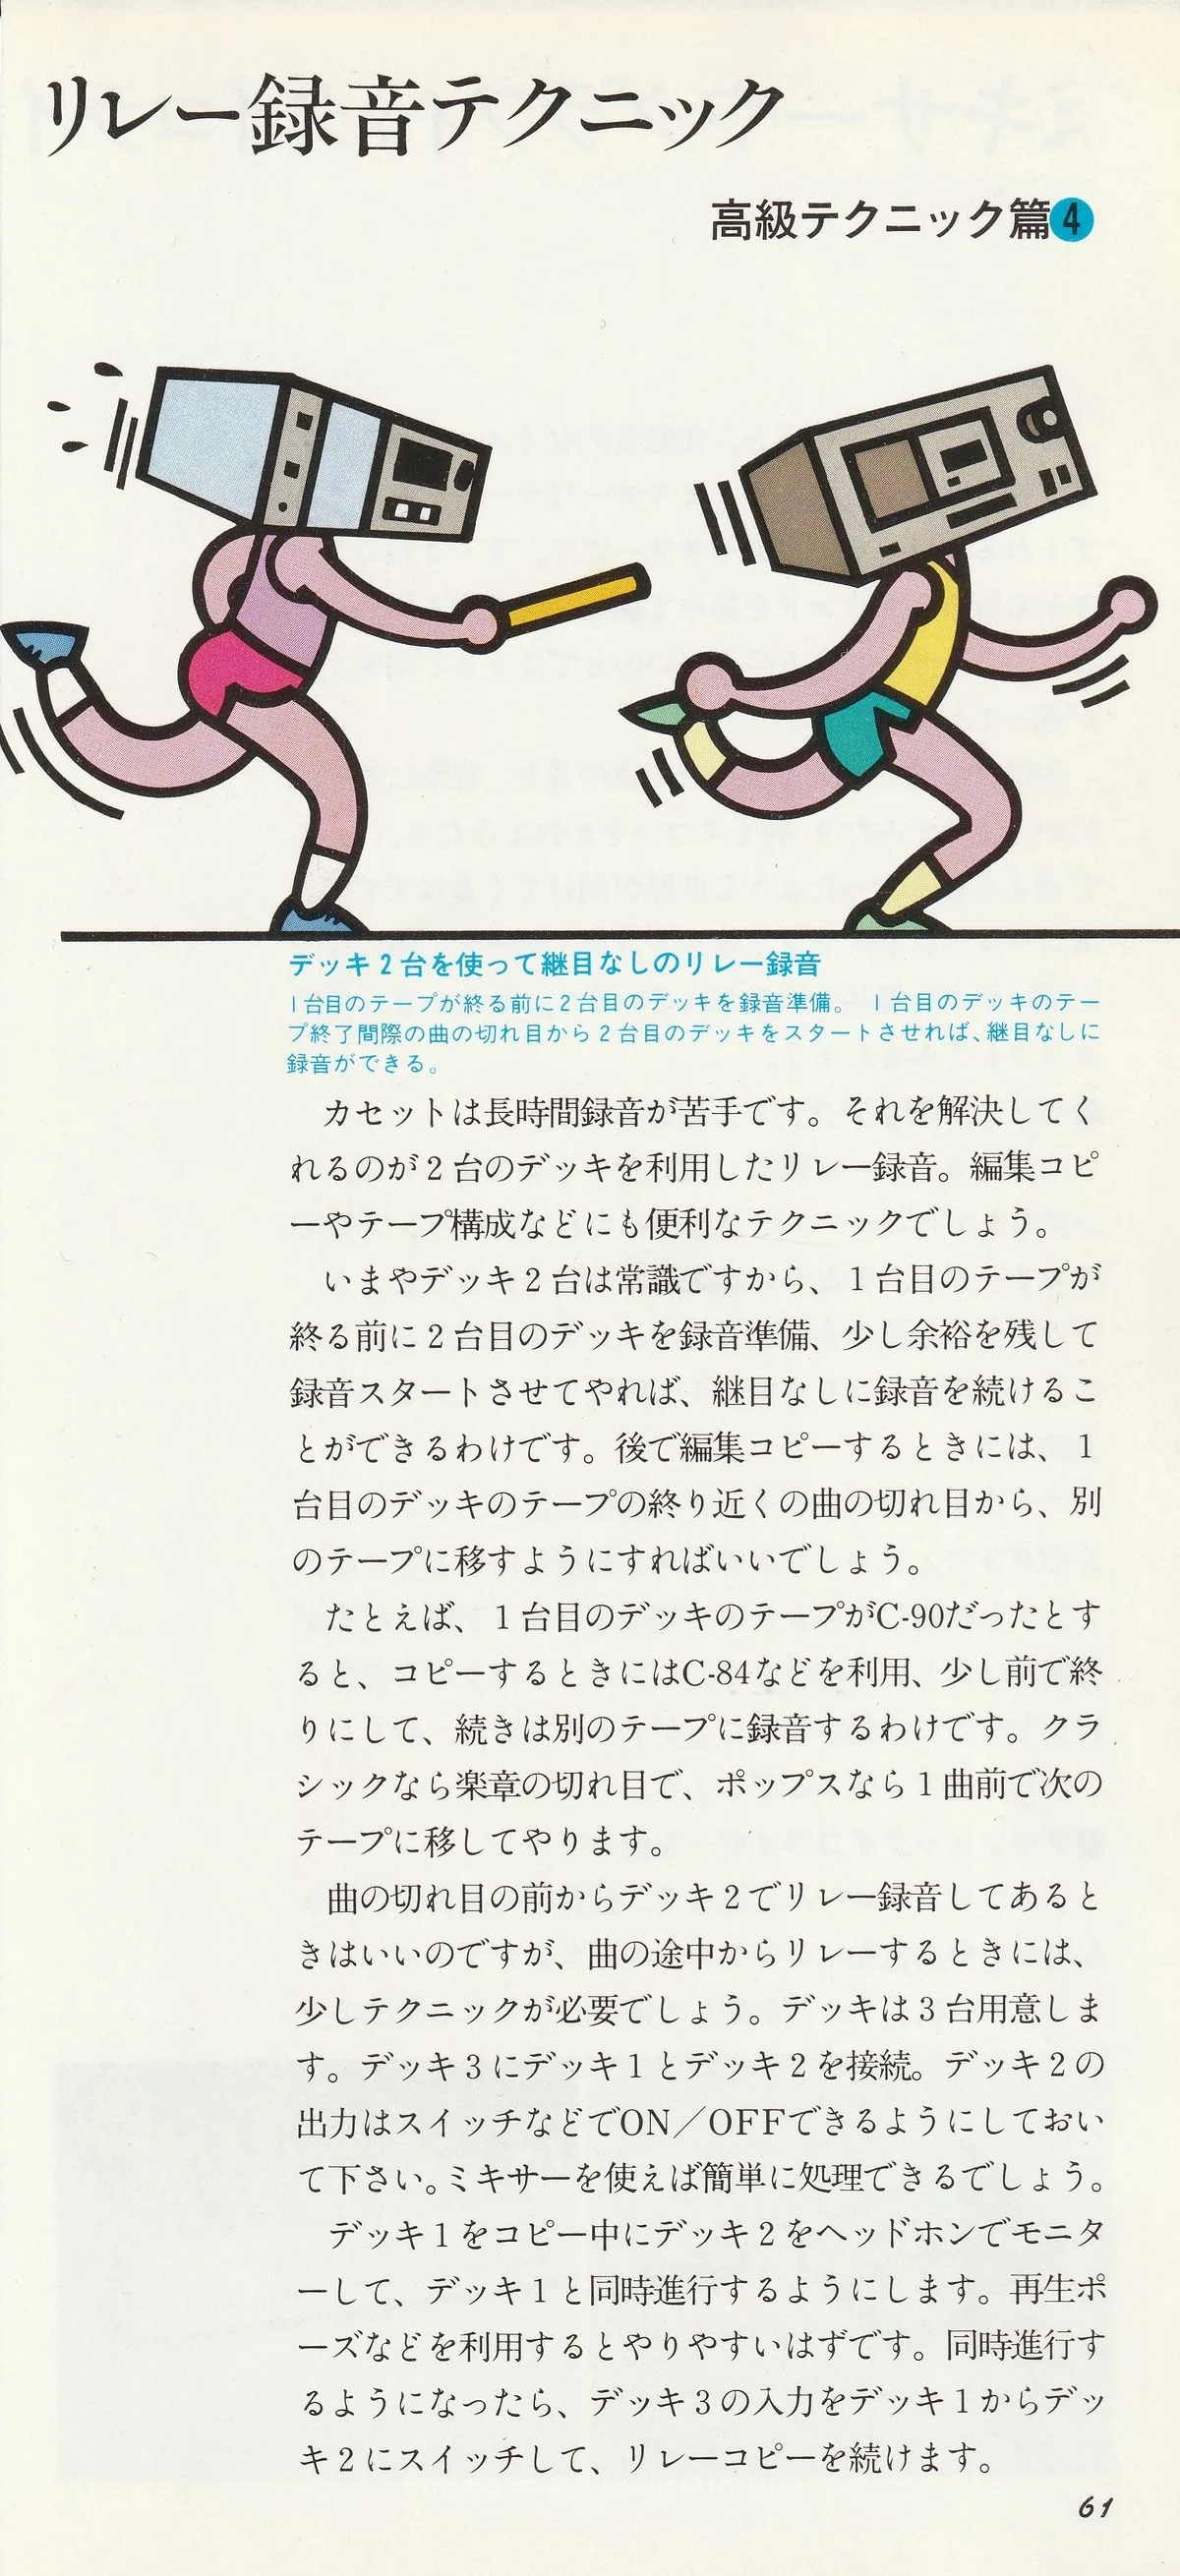 リレー録音テクニック
高級テクニック篇4
デッキ2台を使って継目なしのリレー録音
1台目のテープが終る前に2台目のデッキを録音準備。 1台目のデッキのテー
プ終了間際の曲の切れ目から2台目のデッキをスタートさせれば、継目なしに
録音ができる。
カセットは長時間録音が苦手です。それを解決してく
れるのが2台のデッキを利用したリレー録音。編集コピ
ーやテープ構成などにも便利なテクニックでしょう。
いまやデッキ2台は常識ですから、1台目のテープが
終る前に2台目のデッキを録音準備、少し余裕を残して
録音スタートさせてやれば、継目なしに録音を続けるこ
とができるわけです。後で編集コピーするときには、1
台目のデッキのテープの終り近くの曲の切れ目から、別
のテープに移すようにすればいいでしょう。
たとえば、1台目のデッキのテープがC-90だったとす
ると、コピーするときにはC-84などを利用、少し前で終
りにして、続きは別のテープに録音するわけです。クラ
シックなら楽章の切れ目で、ポップスなら1曲前で次の
テープに移してやります。
曲の切れ目の前からデッキ2でリレー録音してあると
きはいいのですが、曲の途中からリレーするときには、
少しテクニックが必要でしょう。デッキは3台用意しま
す。デッキ3にデッキ1とデッキ2を接続。デッキ2の
出力はスイッチなどでON/OFFできるようにしておい
て下さい。ミキサーを使えば簡単に処理できるでしょう。
デッキ1をコピー中にデッキ2をヘッドホンでモニタ
ーして、デッキ1と同時進行するようにします。再生ポ
ーズなどを利用するとやりやすいはずです。同時進行す
るようになったら、デッキ3の入力をデッキ1からデッ
キ2にスイッチして、リレーコピーを続けます。
61